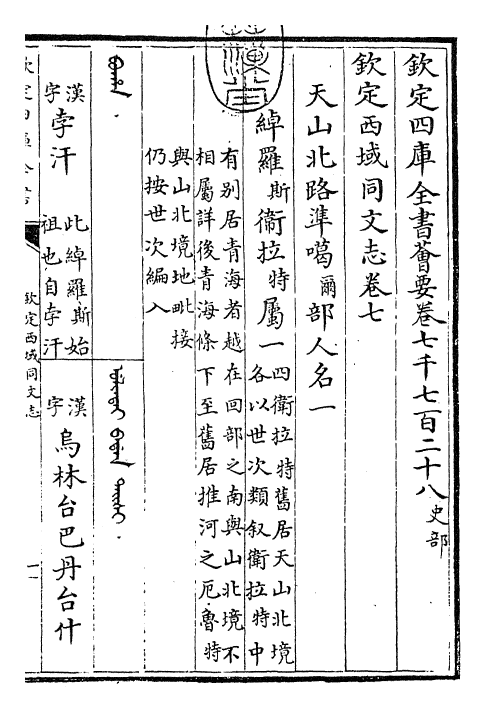 欽定四庫全書薈要卷七千七百二十八史部
欽定西域同文志卷七
天山北路準噶爾部人名一
綽羅斯衛拉特屬一四衛拉特舊居天山北境
各以世次類叙衛拉特中
有别居青海者越在回部之南與山北境不
相屬詳後青海條下至舊居推河之厄魯特
與山北境地毗接
仍按世次編入
漢字孛汗此綽羅斯始
祖也自孛汗
漢字烏林台巴丹台什
欽定西域同文志